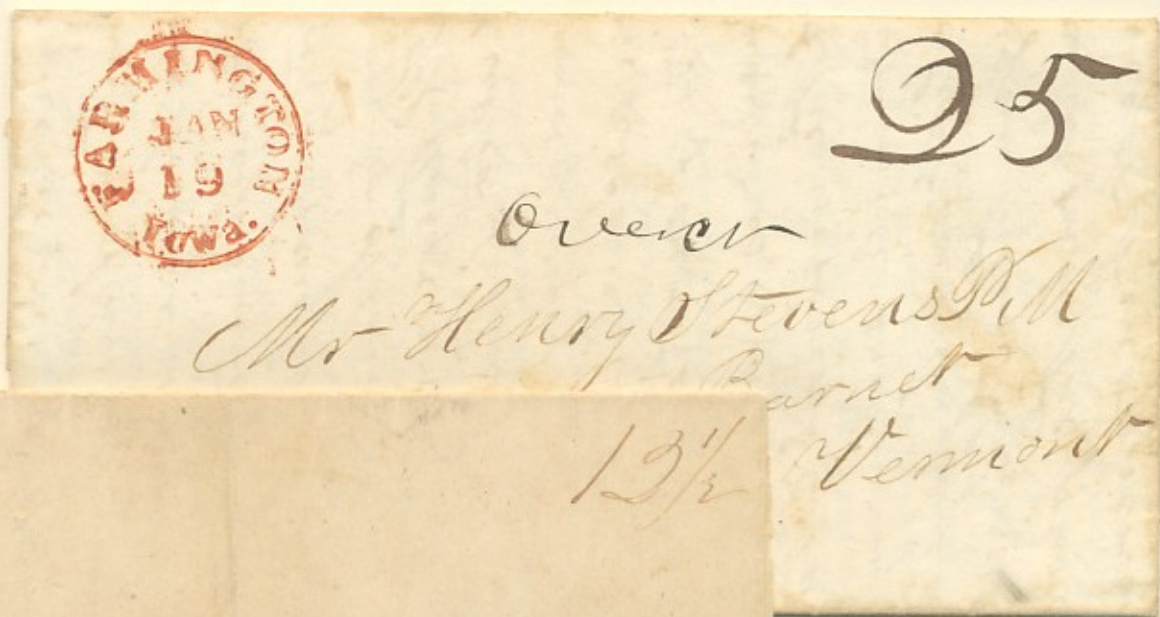 FARMINGTON
JAN
19
Iowa.
25
Over
Mr Henry Stevens P.M
Barnet
Vermont
12½